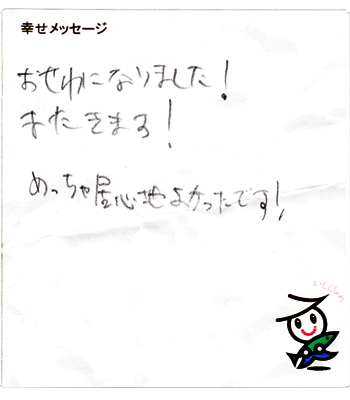 幸せメッセージ
おせわになりました！
またきます！
めっちゃ居心地よかったです！